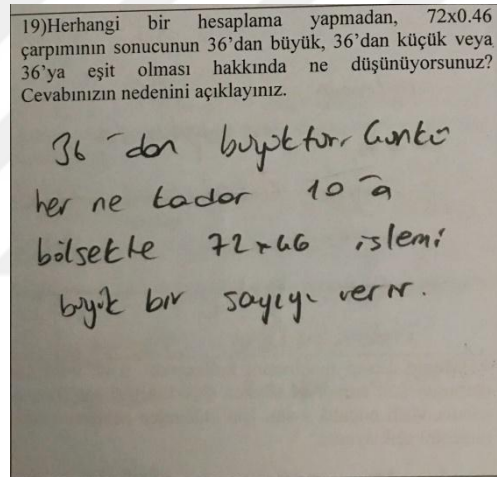 19)Herhangi bir hesaplama yapmadan, 72x0.46
çarpımının sonucunun 36’dan büyük, 36’dan küçük veya
36’ya eşit olması hakkında ne düşünüyorsunuz?
Cevabınızın nedenini açıklayınız.
36 'dan büyüktür. Çünkü
her ne kadar 10'a
bölsekte 72x46 işlemi
büyük bir sayıyı verir.